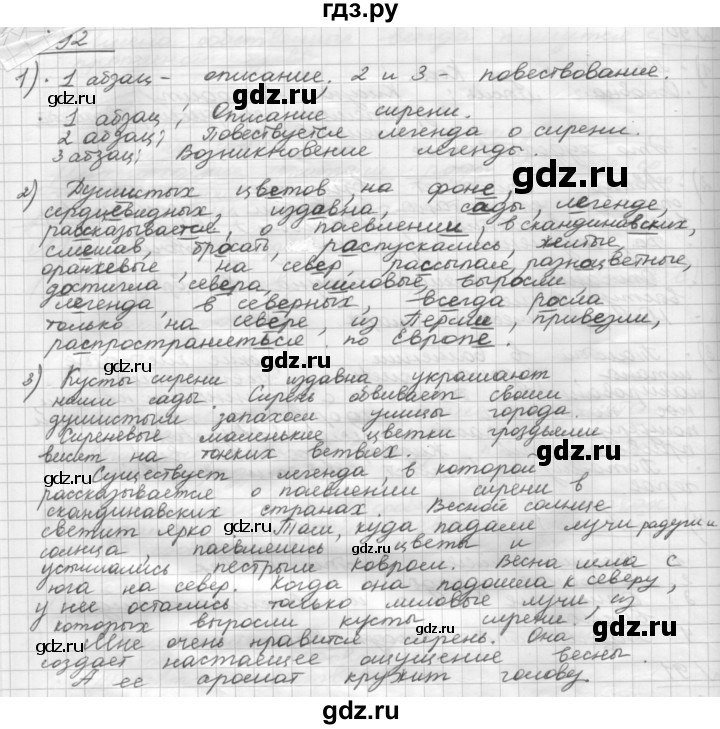 гдз.ру
92
1). 1 абзац - описание, 2 и 3 - повествование.
gdz.ru
1 абзац; Описание сирени.
2 абзац; Повествуется легенда о сирени.
3 абзац; Возникновение легенды.
gdz.ru
2) Душистых цветов, на фоне,
сердцевидных, издавна, сады, легенде,
рассказывается, о появлении, в скандинавских,
смешав, бросать, распускались, желтые,
оранжевые, на север, рассыпал, разноцветные,
достигла севера, лиловые, выросли
легенда, в северных, всегда росла
только на севере, из Персии, привезли,
распространеться по Европе.
gdz.ru
3) Кусты сирени издавна украшают
наши сады. Сирень обвивает своим
душистым запахом улицы города.
Сиреневые маленькие цветки гроздьями
висят на тонких ветвях.
gdz.ru
Существует легенда, в которой
gdz.ru
рассказывается о появлении сирени в
скандинавских странах. Весной солнце
светит ярко. Там, куда падали лучи радуги и
gdz.ru
солнца, появились цветы и
gdz.ru
устилались пестрым ковром. Весна шла с
юга на север. Когда она подошла к северу,
у нее остались только лиловые лучи, из
которых выросли кусты сирени.
gdz.ru
Мне очень нравится сирень. Она
gdz.ru
создает настоящее ощущение весны.
А ее аромат кружит голову.
gdz.ru
gdz.ru